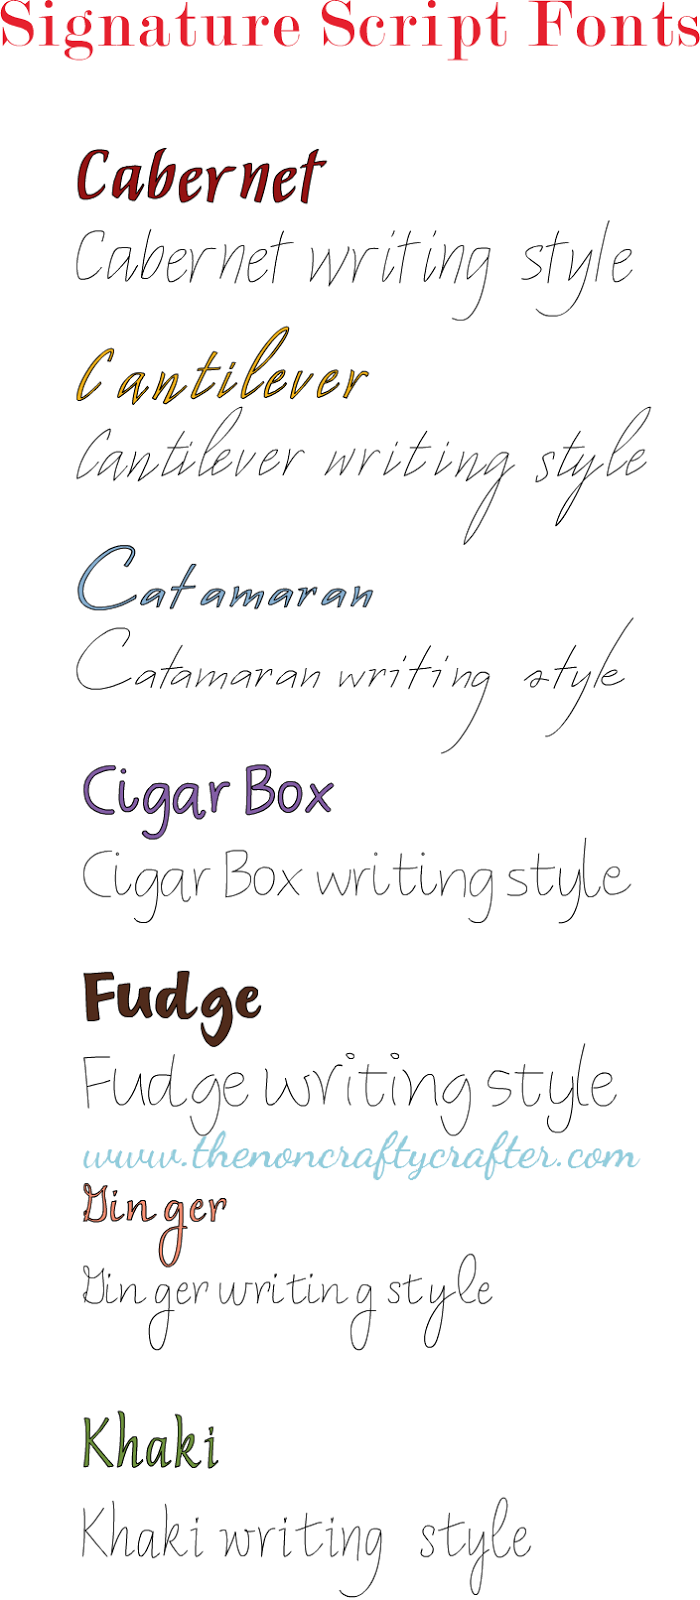 Signature Script Fonts
Cabernet
Cabernet writing style
Cantilever
Cantilever writing style
Catamaran
Catamaran writing style
Cigar Box
Cigar Box writing style
Fudge
Fudge writing style
www.thenoncraftycrafter.com
Ginger
Ginger writing style
Khaki
Khaki writing style